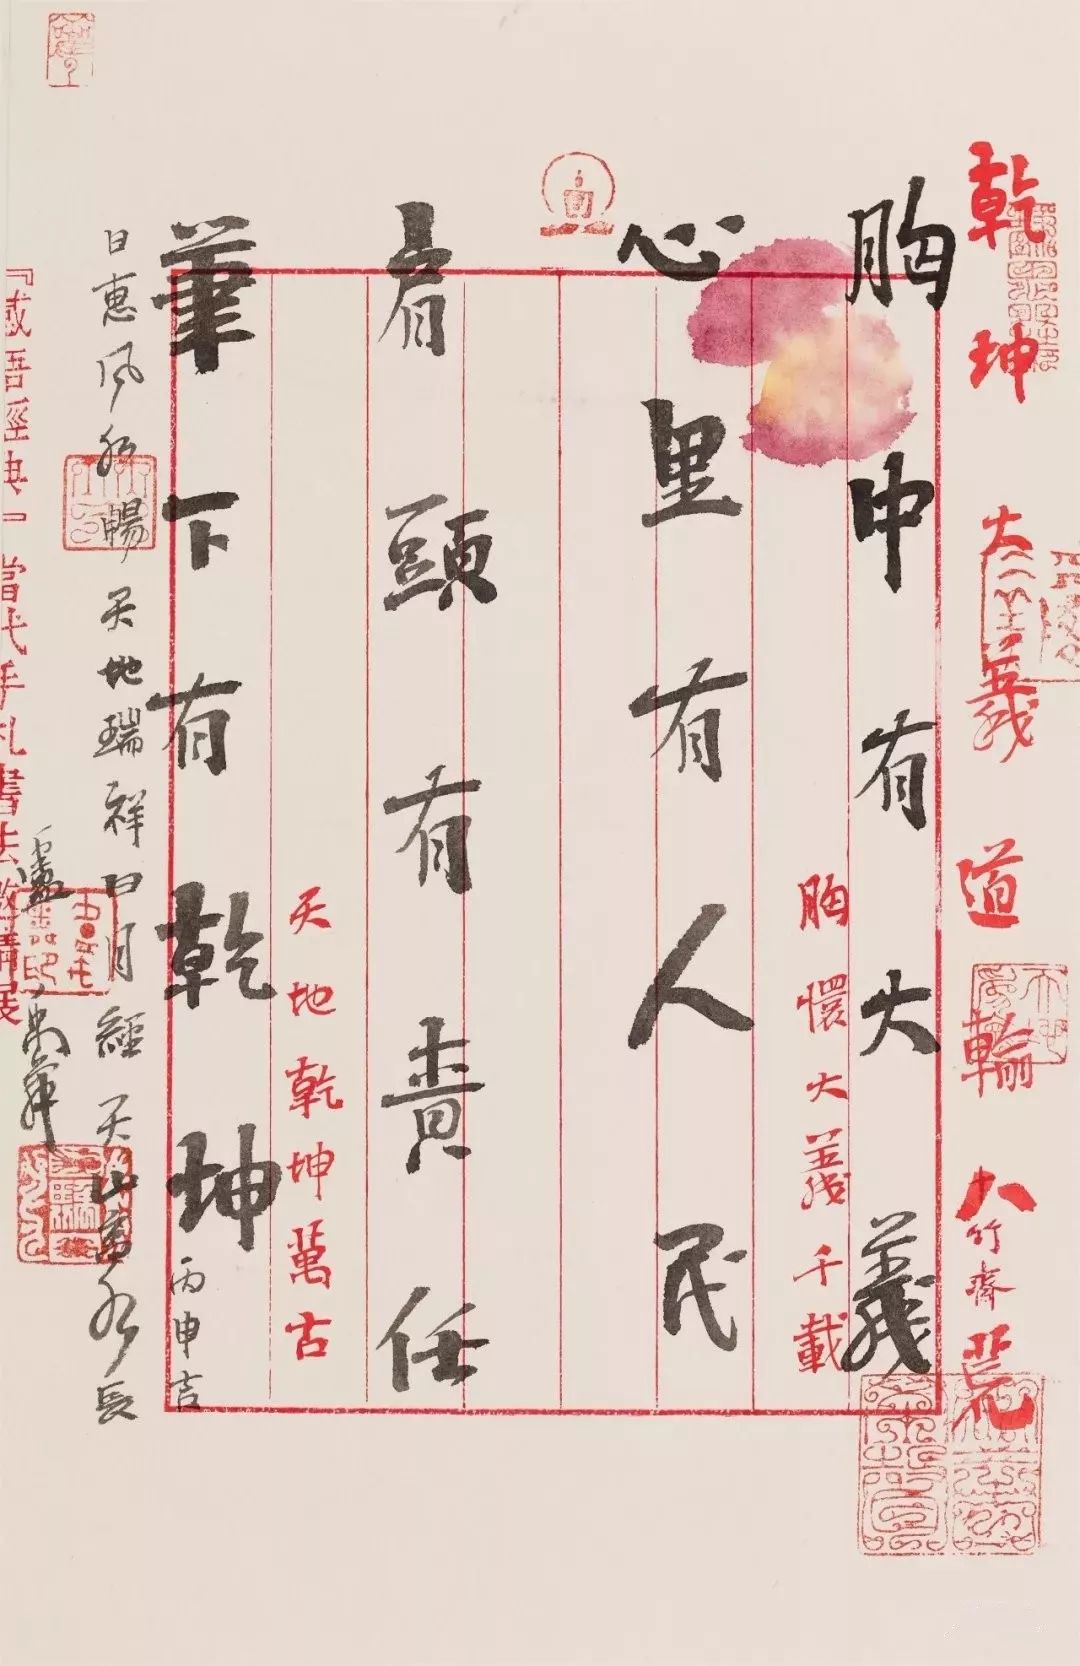 乾坤大義道輪大荒
竹齋
胸中有大義
胸懷大義千載
心里有人民
肩頭有責任
天地乾坤萬古
筆下有乾坤
丙申吉
日惠風和暢天地瑞祥日月經天山高水長
盧禹舜
『感悟經典』當代手札書法